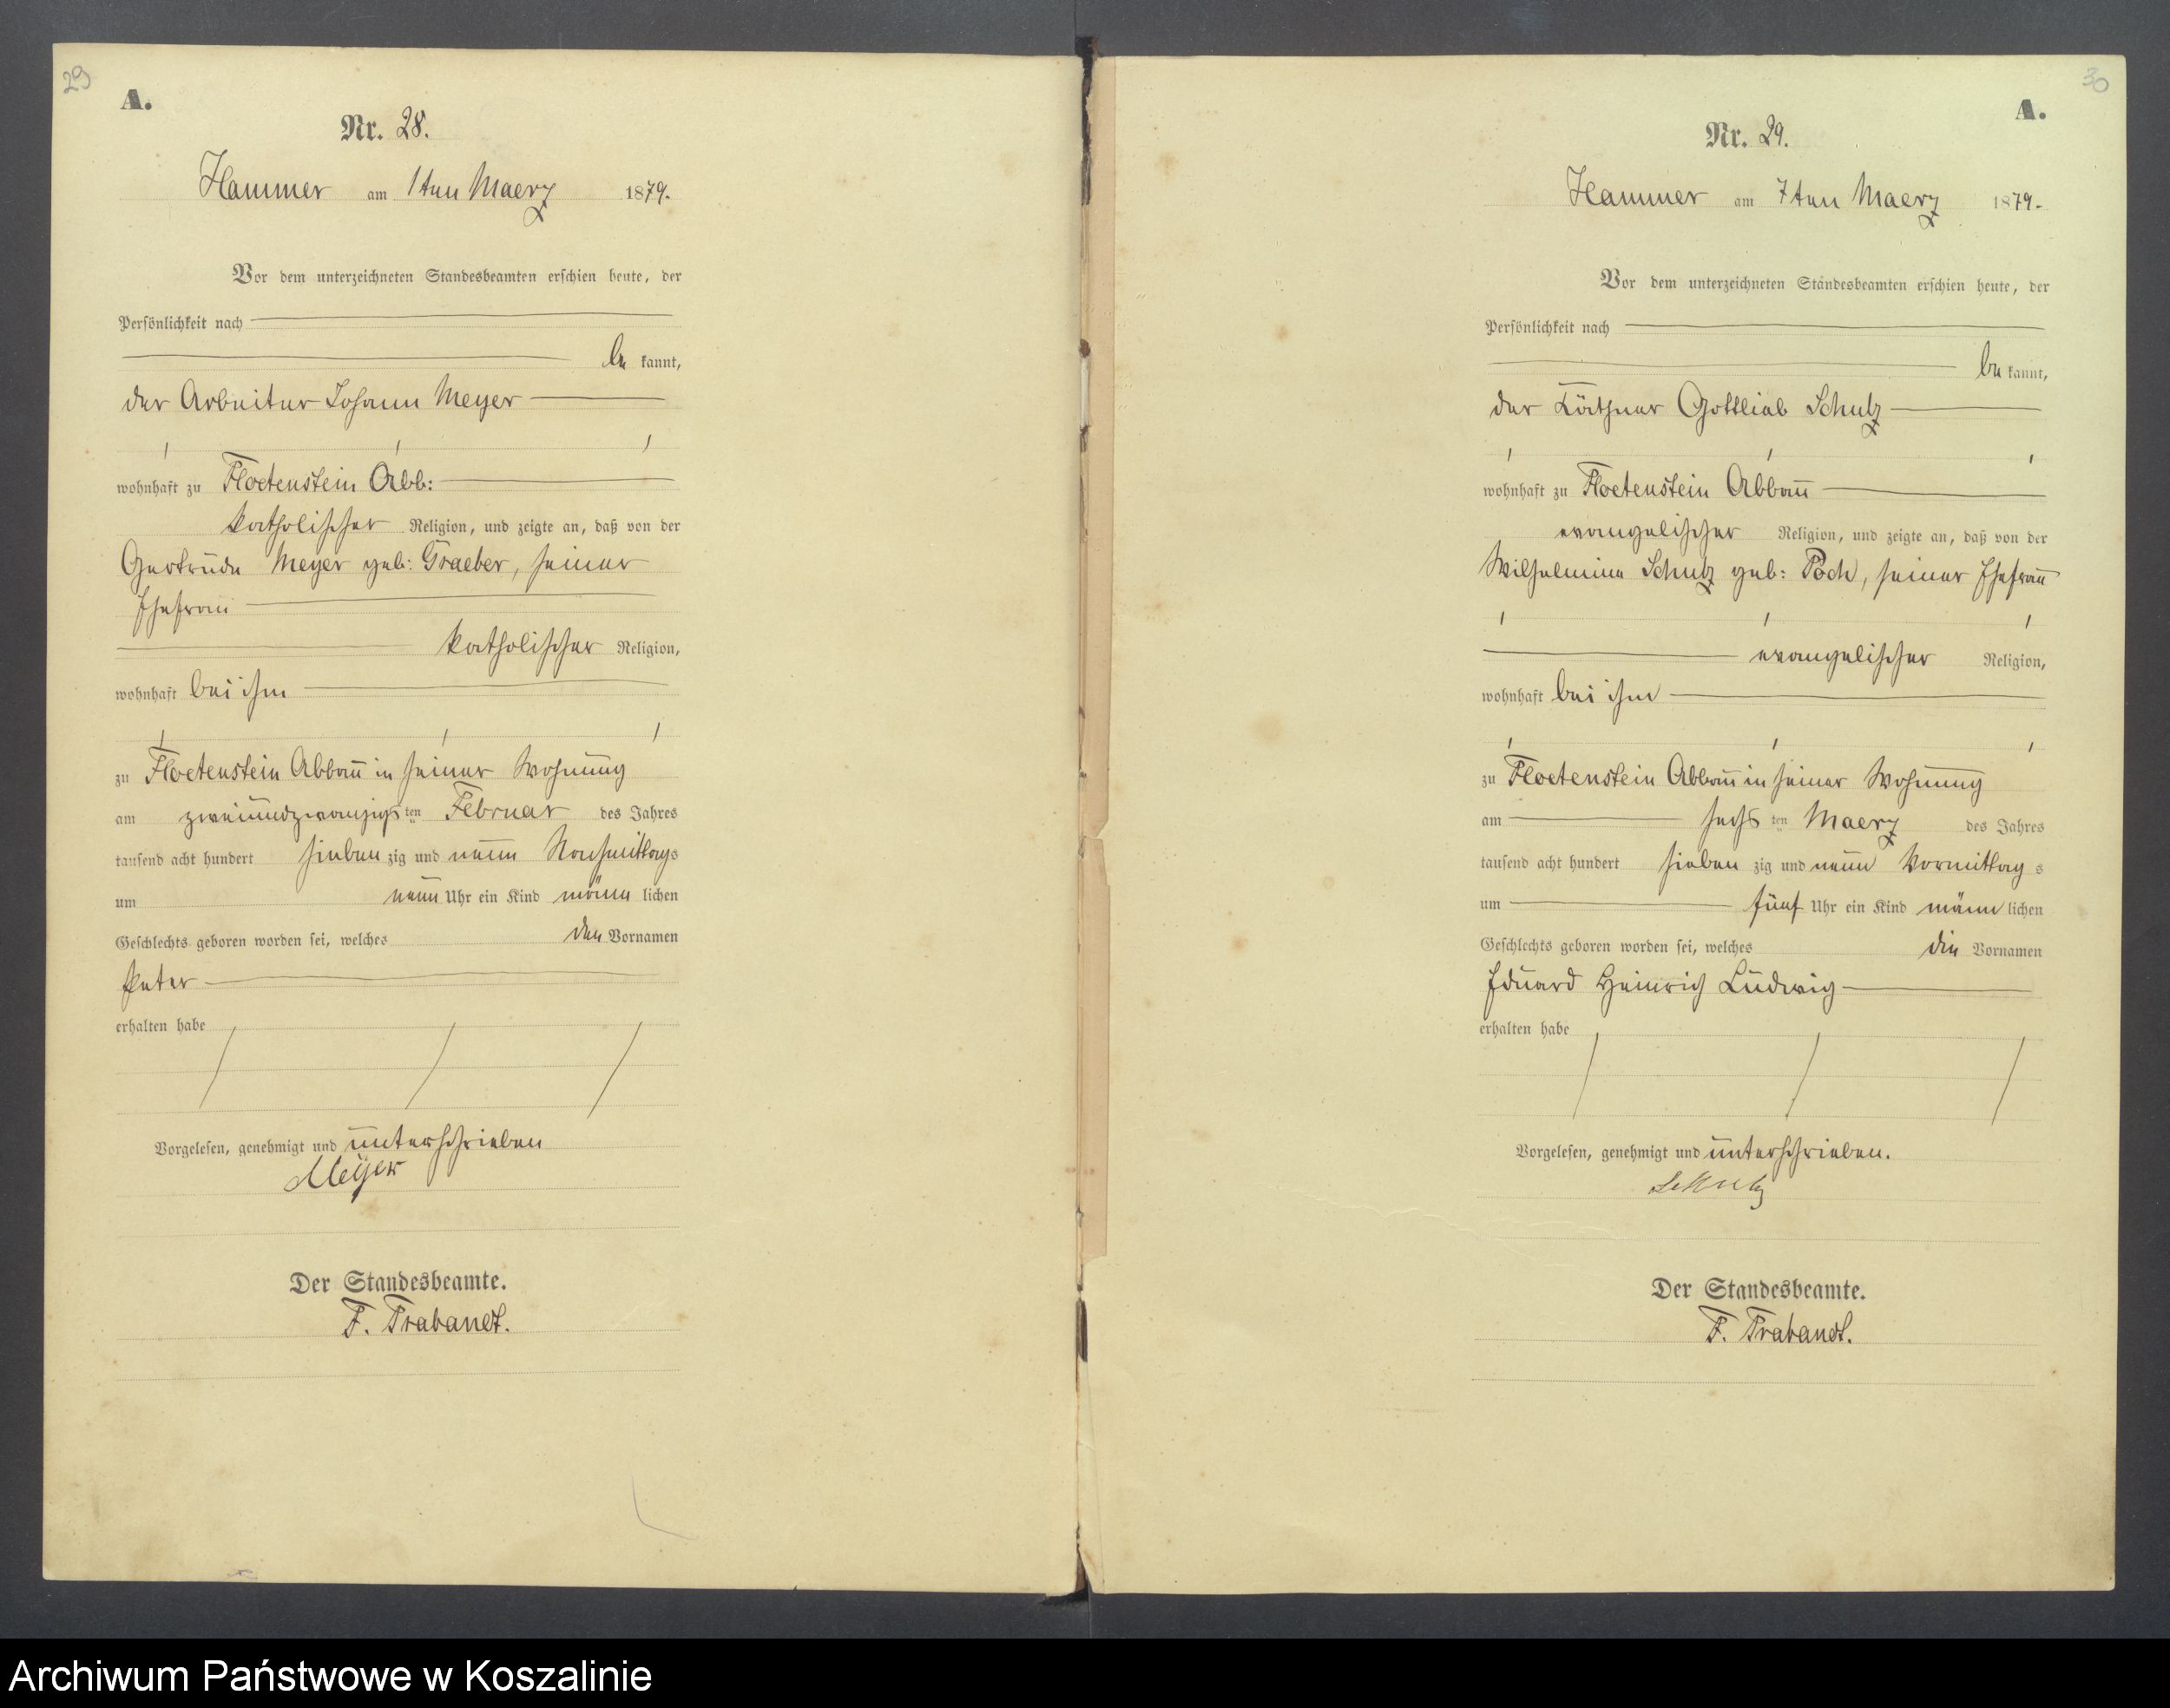 29
A.
Nr. 28.
Hammer am 1ten Maerz 1879.
Vor dem unterzeichneten Standesbeamten erschien heute, der
Persönlichkeit nach
be kannt,
der Arbeiter Johann Meyer
wohnhaft zu Floetenstein Abb:
katholischer Religion, und zeigte an, daß von der
Gertrude Meyer geb: Graeber, seiner
Ehefrau
katholischer Religion,
wohnhaft bei ihm
zu Floetenstein Abbau in seiner Wohnung
am zweiundzwanzigsten Februar des Jahres
tausend acht hundert sieben zig und neun Nachmittags
um neun Uhr ein Kind männ lichen
Geschlechts geboren worden sei, welches den Vornamen
Peter
erhalten habe
Vorgelesen, genehmigt und unterschrieben
Meyer
Der Standesbeamte.
F. Trabandt.
30
A.
Nr. 29.
Hammer am 7ten Maerz 1879.
Vor dem unterzeichneten Standesbeamten erschien heute, der
Persönlichkeit nach
be kannt,
der Käthner Gottlieb Schulz
wohnhaft zu Floetenstein Abbau
evangelischer Religion, und zeigte an, daß von der
Wilhelmine Schulz geb: Poch, seiner Ehefrau
evangelischer Religion,
wohnhaft bei ihm
zu Floetenstein Abbau in seiner Wohnung
am sechsten Maerz des Jahres
tausend acht hundert sieben zig und neun Vormittag s
um fünf Uhr ein Kind männ lichen
Geschlechts geboren worden sei, welches die Vornamen
Eduard Heinrich Ludwig
erhalten habe
Vorgelesen, genehmigt und unterschrieben.
Schulz
Der Standesbeamte.
F. Trabandt.
Archiwum Państwowe w Koszalinie